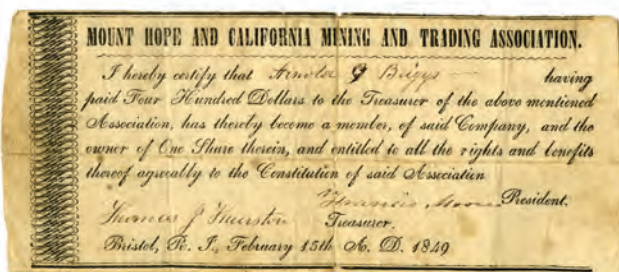 MOUNT HOPE AND CALIFORNIA MINING AND TRADING ASSOCIATION.
I hereby certify that Arnold G Briggs having
paid Four Hundred Dollars to the Treasurer of the above mentioned
Association, has thereby become a member, of said Company, and the
owner of One Share therein, and entitled to all the rights and benefits
thereof agreeably to the Constitution of said Association
Francis Moore President.
Thomas J Thurston Treasurer.
Bristol, R. I., February 15th A. D. 1849